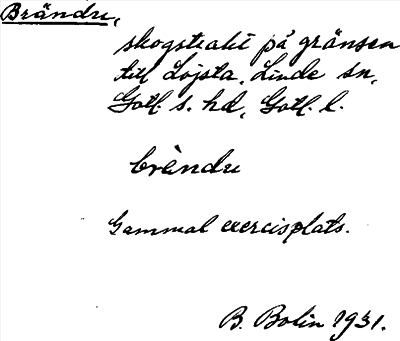 Brändu,
skogstrakt på gränsen
till Lojsta. Linde sn,
Gotl. s. hd, Gotl. l.
brèndu
Gammal exercisplats.
B. Bolin 1931.